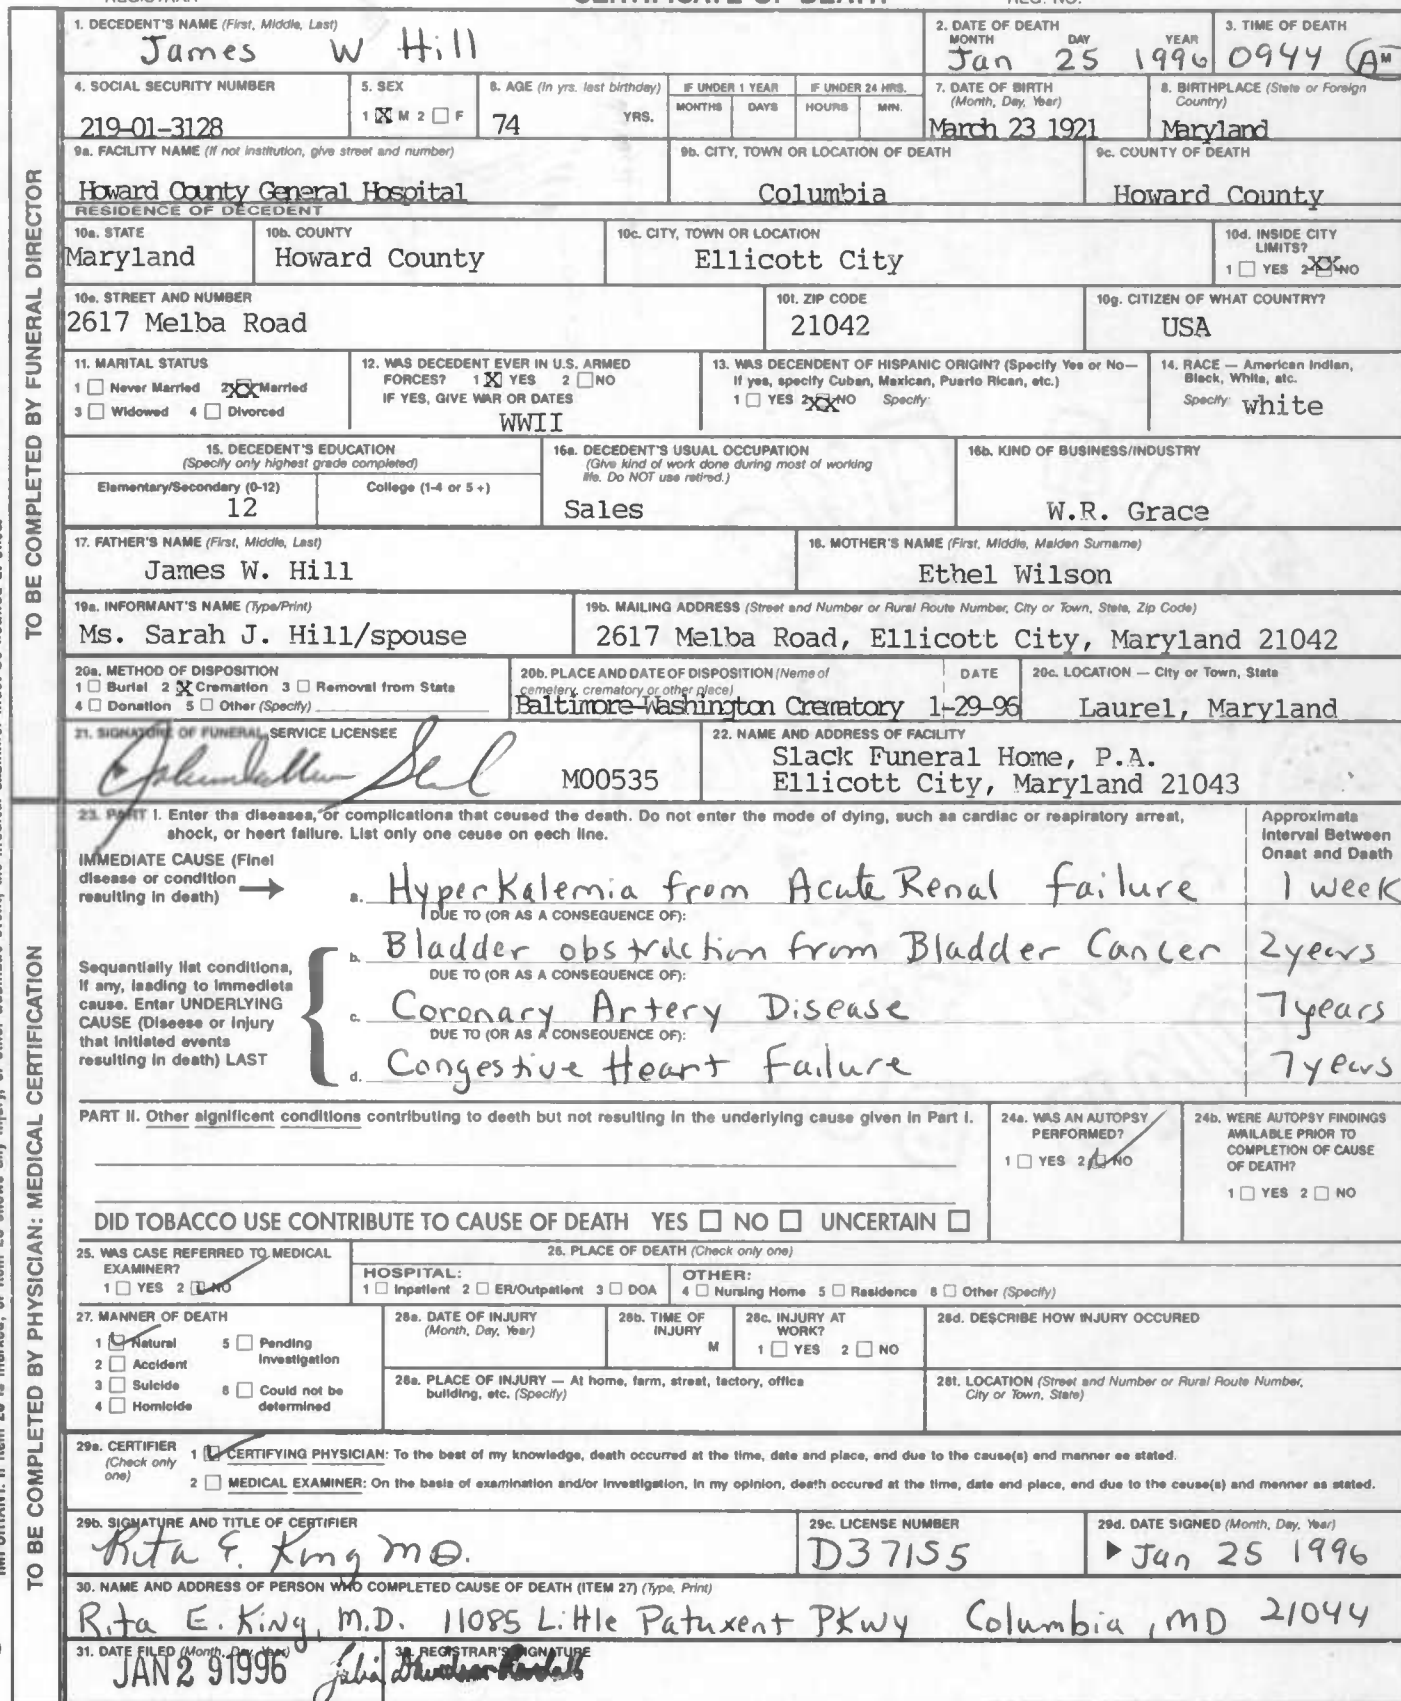 CERTIFICATE OF DEATH
REGISTRAR REG. NO.
1. DECEDENT'S NAME (First, Middle, Last)
James W Hill
2. DATE OF DEATH
MONTH DAY YEAR
Jan 25 1996
3. TIME OF DEATH
0944 AM
4. SOCIAL SECURITY NUMBER
219-01-3128
5. SEX
1 X M 2 ☐ F
6. AGE (In yrs. last birthday)
74 YRS.
IF UNDER 1 YEAR
MONTHS DAYS
IF UNDER 24 HRS.
HOURS MIN.
7. DATE OF BIRTH
(Month, Day, Year)
March 23 1921
8. BIRTHPLACE (State or Foreign
Country)
Maryland
9a. FACILITY NAME (If not institution, give street and number)
Howard County General Hospital
9b. CITY, TOWN OR LOCATION OF DEATH
Columbia
9c. COUNTY OF DEATH
Howard County
RESIDENCE OF DECEDENT
10a. STATE
Maryland
10b. COUNTY
Howard County
10c. CITY, TOWN OR LOCATION
Ellicott City
10d. INSIDE CITY
LIMITS?
1 ☐ YES 2 XX NO
10e. STREET AND NUMBER
2617 Melba Road
10f. ZIP CODE
21042
10g. CITIZEN OF WHAT COUNTRY?
USA
11. MARITAL STATUS
1 ☐ Never Married 2 XX Married
3 ☐ Widowed 4 ☐ Divorced
12. WAS DECEDENT EVER IN U.S. ARMED
FORCES? 1 X YES 2 ☐ NO
IF YES, GIVE WAR OR DATES
WWII
13. WAS DECENDENT OF HISPANIC ORIGIN? (Specify Yes or No—
If yes, specify Cuban, Mexican, Puerto Rican, etc.)
1 ☐ YES 2 XX NO Specify:
14. RACE — American Indian,
Black, White, etc.
Specify: white
15. DECEDENT'S EDUCATION
(Specify only highest grade completed)
Elementary/Secondary (0-12) College (1-4 or 5+)
12
16a. DECEDENT'S USUAL OCCUPATION
(Give kind of work done during most of working
life. Do NOT use retired.)
Sales
16b. KIND OF BUSINESS/INDUSTRY
W.R. Grace
17. FATHER'S NAME (First, Middle, Last)
James W. Hill
18. MOTHER'S NAME (First, Middle, Maiden Surname)
Ethel Wilson
19a. INFORMANT'S NAME (Type/Print)
Ms. Sarah J. Hill/spouse
19b. MAILING ADDRESS (Street and Number or Rural Route Number, City or Town, State, Zip Code)
2617 Melba Road, Ellicott City, Maryland 21042
20a. METHOD OF DISPOSITION
1 ☐ Burial 2 X Cremation 3 ☐ Removal from State
4 ☐ Donation 5 ☐ Other (Specify)
20b. PLACE AND DATE OF DISPOSITION (Name of
cemetery, crematory or other place) DATE
Baltimore-Washington Crematory 1-29-96
20c. LOCATION — City or Town, State
Laurel, Maryland
21. SIGNATURE OF FUNERAL SERVICE LICENSEE
M00535
22. NAME AND ADDRESS OF FACILITY
Slack Funeral Home, P.A.
Ellicott City, Maryland 21043
TO BE COMPLETED BY FUNERAL DIRECTOR
23. PART I. Enter the diseases, or complications that caused the death. Do not enter the mode of dying, such as cardiac or respiratory arrest,
shock, or heart failure. List only one cause on each line.
Approximate
Interval Between
Onset and Death
IMMEDIATE CAUSE (Final
disease or condition
resulting in death) →
a. Hyperkalemia from Acute Renal failure 1 week
DUE TO (OR AS A CONSEQUENCE OF):
b. Bladder obstruction from Bladder Cancer 2 years
DUE TO (OR AS A CONSEQUENCE OF):
c. Coronary Artery Disease 7 years
DUE TO (OR AS A CONSEQUENCE OF):
d. Congestive Heart Failure 7 years
Sequentially list conditions,
if any, leading to immediate
cause. Enter UNDERLYING
CAUSE (Disease or injury
that initiated events
resulting in death) LAST
PART II. Other significant conditions contributing to death but not resulting in the underlying cause given in Part I.
24a. WAS AN AUTOPSY
PERFORMED?
1 ☐ YES 2 ☑ NO
24b. WERE AUTOPSY FINDINGS
AVAILABLE PRIOR TO
COMPLETION OF CAUSE
OF DEATH?
1 ☐ YES 2 ☐ NO
DID TOBACCO USE CONTRIBUTE TO CAUSE OF DEATH YES ☐ NO ☐ UNCERTAIN ☐
25. WAS CASE REFERRED TO MEDICAL
EXAMINER?
1 ☐ YES 2 ☑ NO
26. PLACE OF DEATH (Check only one)
HOSPITAL:
1 ☐ Inpatient 2 ☐ ER/Outpatient 3 ☐ DOA
OTHER:
4 ☐ Nursing Home 5 ☐ Residence 6 ☐ Other (Specify)
27. MANNER OF DEATH
1 ☑ Natural 5 ☐ Pending
Investigation
2 ☐ Accident
3 ☐ Suicide 6 ☐ Could not be
determined
4 ☐ Homicide
28a. DATE OF INJURY
(Month, Day, Year)
28b. TIME OF
INJURY
M
28c. INJURY AT
WORK?
1 ☐ YES 2 ☐ NO
28d. DESCRIBE HOW INJURY OCCURED
28e. PLACE OF INJURY — At home, farm, street, factory, office
building, etc. (Specify)
28f. LOCATION (Street and Number or Rural Route Number,
City or Town, State)
29a. CERTIFIER
(Check only
one)
1 ☑ CERTIFYING PHYSICIAN: To the best of my knowledge, death occurred at the time, date and place, and due to the cause(s) and manner as stated.
2 ☐ MEDICAL EXAMINER: On the basis of examination and/or investigation, in my opinion, death occured at the time, date and place, and due to the cause(s) and manner as stated.
29b. SIGNATURE AND TITLE OF CERTIFIER
Rita E. King MD.
29c. LICENSE NUMBER
D37155
29d. DATE SIGNED (Month, Day, Year)
Jan 25 1996
30. NAME AND ADDRESS OF PERSON WHO COMPLETED CAUSE OF DEATH (ITEM 27) (Type, Print)
Rita E. King, M.D. 11085 Little Patuxent PKwy Columbia, MD 21044
31. DATE FILED (Month, Day, Year)
JAN 29 1996
32. REGISTRAR'S SIGNATURE
TO BE COMPLETED BY PHYSICIAN: MEDICAL CERTIFICATION